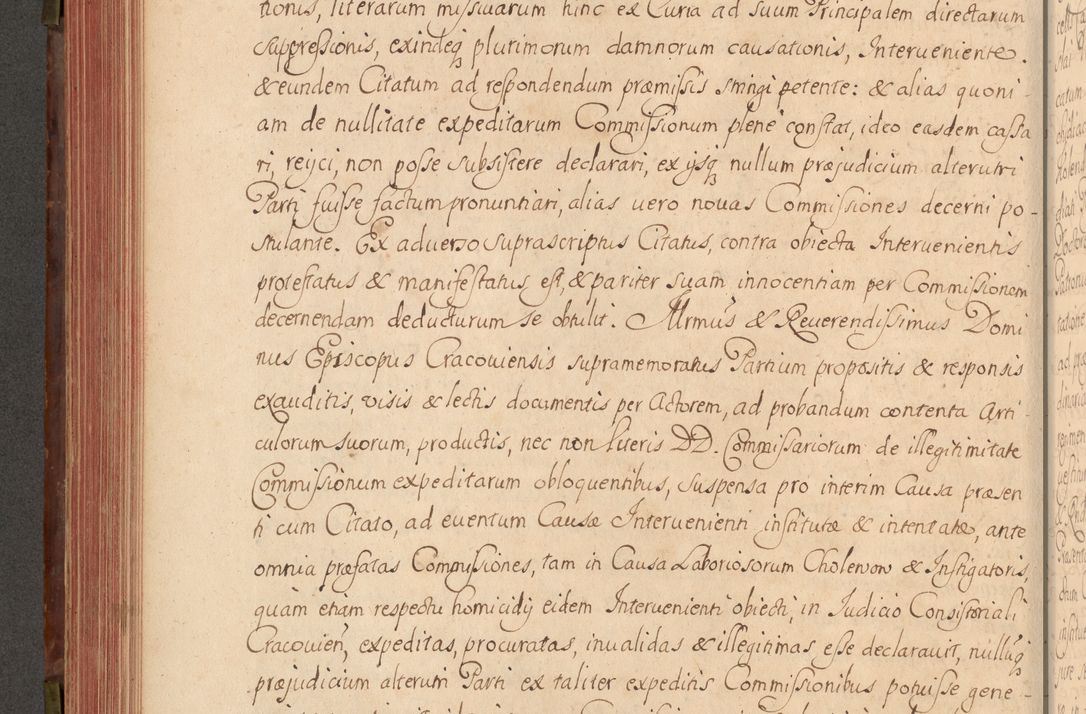 tionis, literarum missiuarum hinc ex Curia ad suum Principalem directarum
suppressionis, exindeq3 plurimorum damnorum causationis, Interueniente.
& eundem Citatum ad respondendum præmissis stringi petente: & alias quoni-
am de nullitate expeditarum Commissionum plene constat, ideo easdem cassa
ri, reijci, non posse subsistere declarari, ex ijsq3 nullum præjudicium alterutri
Parti fuisse factum pronuntiari, alias uero nouas Commissiones decerni po-
stulante. Ex aduerso suprascriptus Citatus, contra obiecta Interuenientis
protestatus & manifestatus est, & pariter suam innocentiam per Commissionem
decernendam deducturum se obtulit. Illrmus & Reuerendissimus Domi
nus Episcopus Cracouiensis supramemoratus Partium propositis & responsis
exauditis, visis & lectis documentis per Actorem, ad probandum contenta Arti-
culorum suorum, productis, nec non literis DD. Commissariorum de illegitimitate
Commissionum expeditarum obloquentibus, suspensa pro interim Causa præsen
ti cum Citato, ad euentum Causæ Interuenienti institutæ & intentatæ, ante
omnia præfatas Commissiones, tam in Causa Laboriosorum Cholewow & Instigatoris,
quam etiam respectu homicidij eidem Interuenienti obiecti, in Iudicio Consistoriali
Cracouien, expeditas, procuratas, inualidas & illegitimas esse declarauit, nullu[m]q3
præjudicium alterutri Parti ex taliter expeditis Commissionibus potuisse gene-